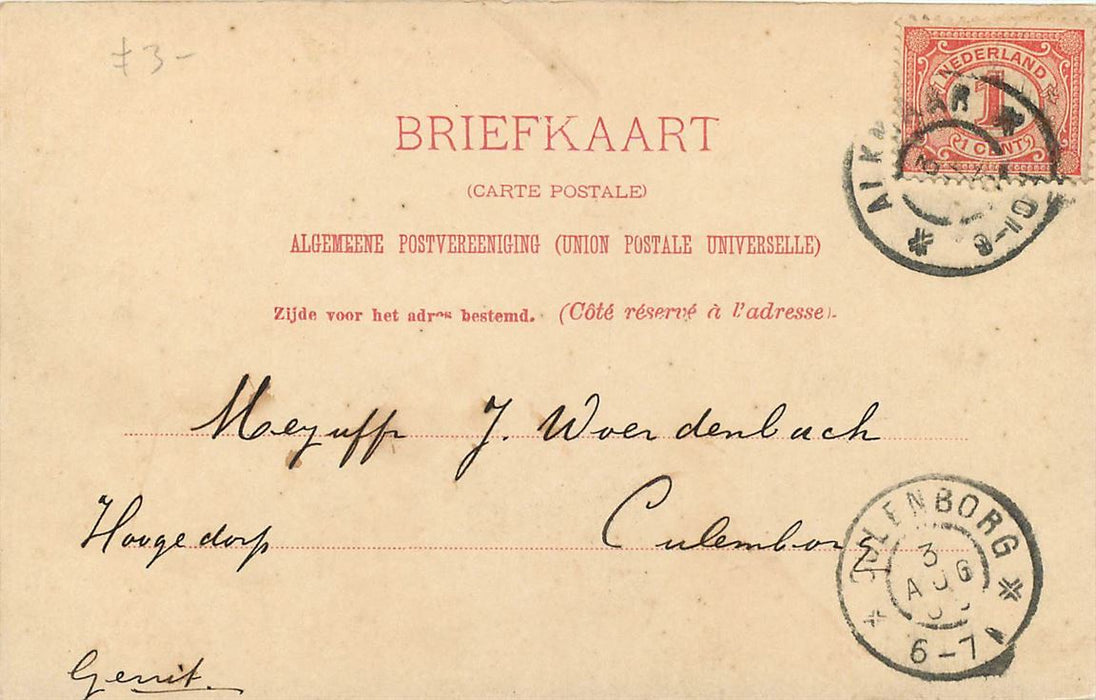 f 3-
NEDERLAND
1
1 CENT
ALKMAAR
BRIEFKAART
(CARTE POSTALE)
ALGEMEENE POSTVEREENIGING (UNION POSTALE UNIVERSELLE)
Zijde voor het adres bestemd. (Côté réservé à l'adresse).
Mezuffr J. Woerdenbach
Hoogedorp Culemborg
CULENBORG
3
AUG
6-7
Gerrit.